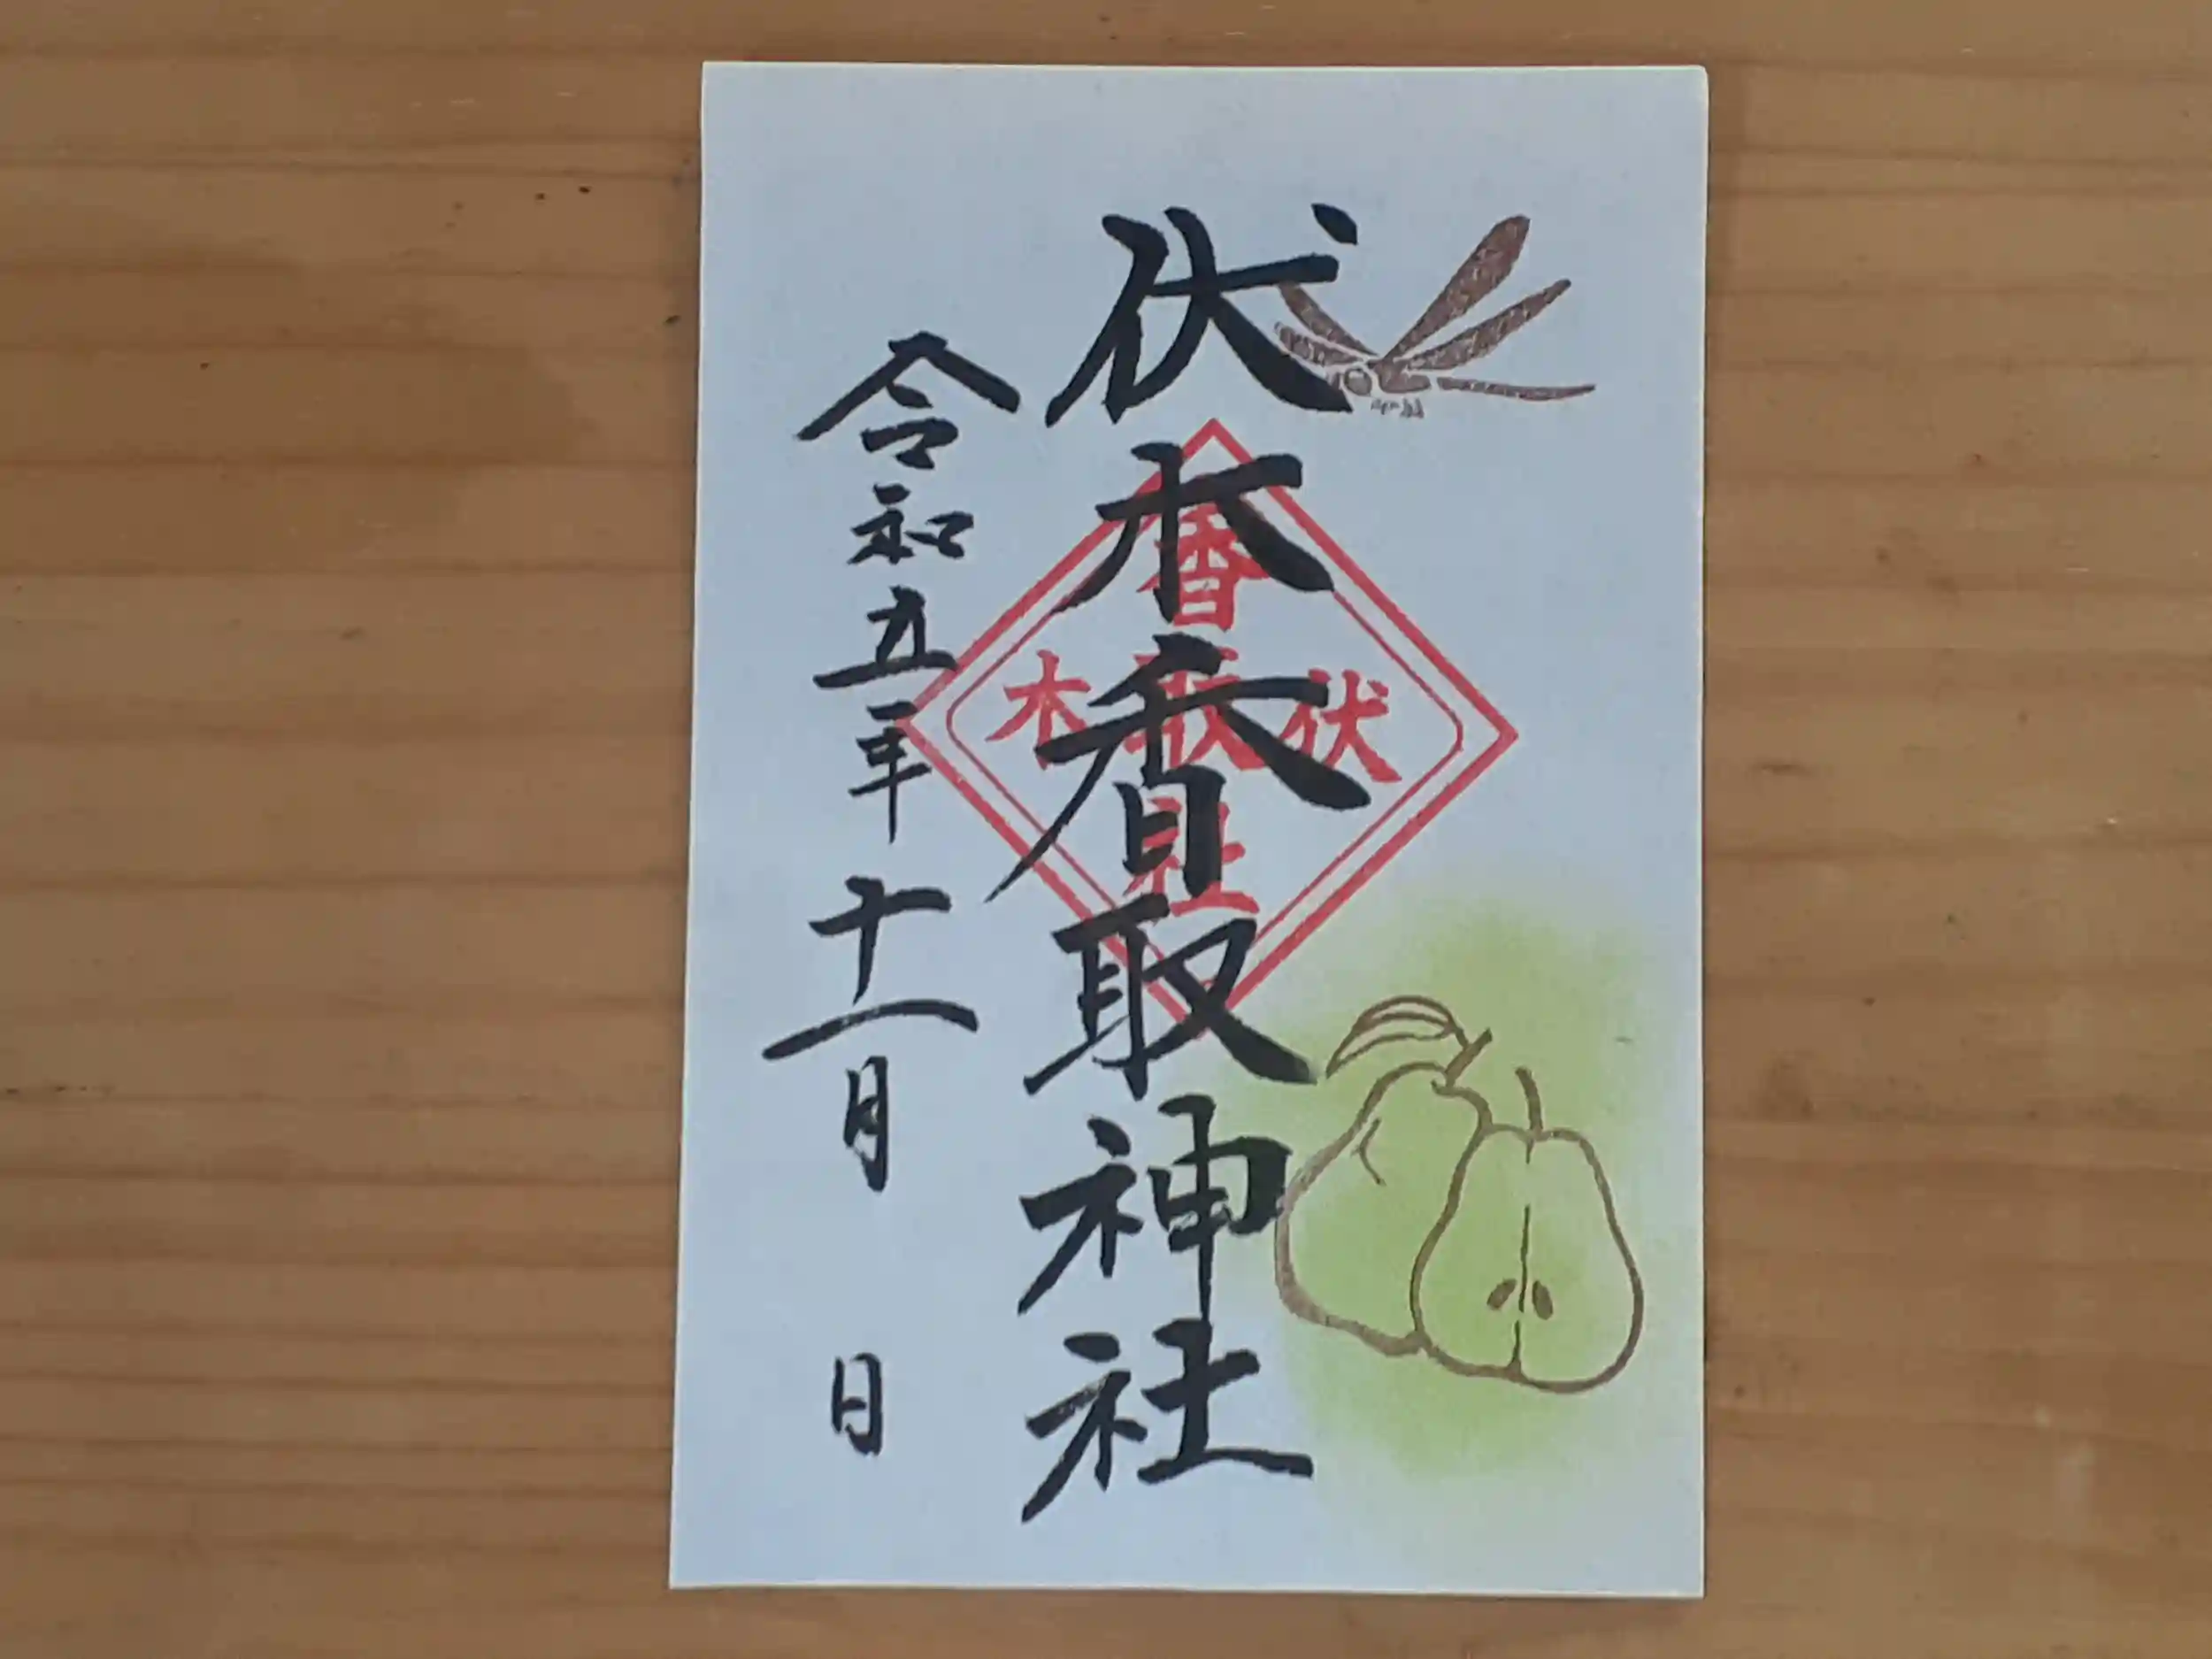 伏木香取神社
香取社
伏木
令和五年十一月 日